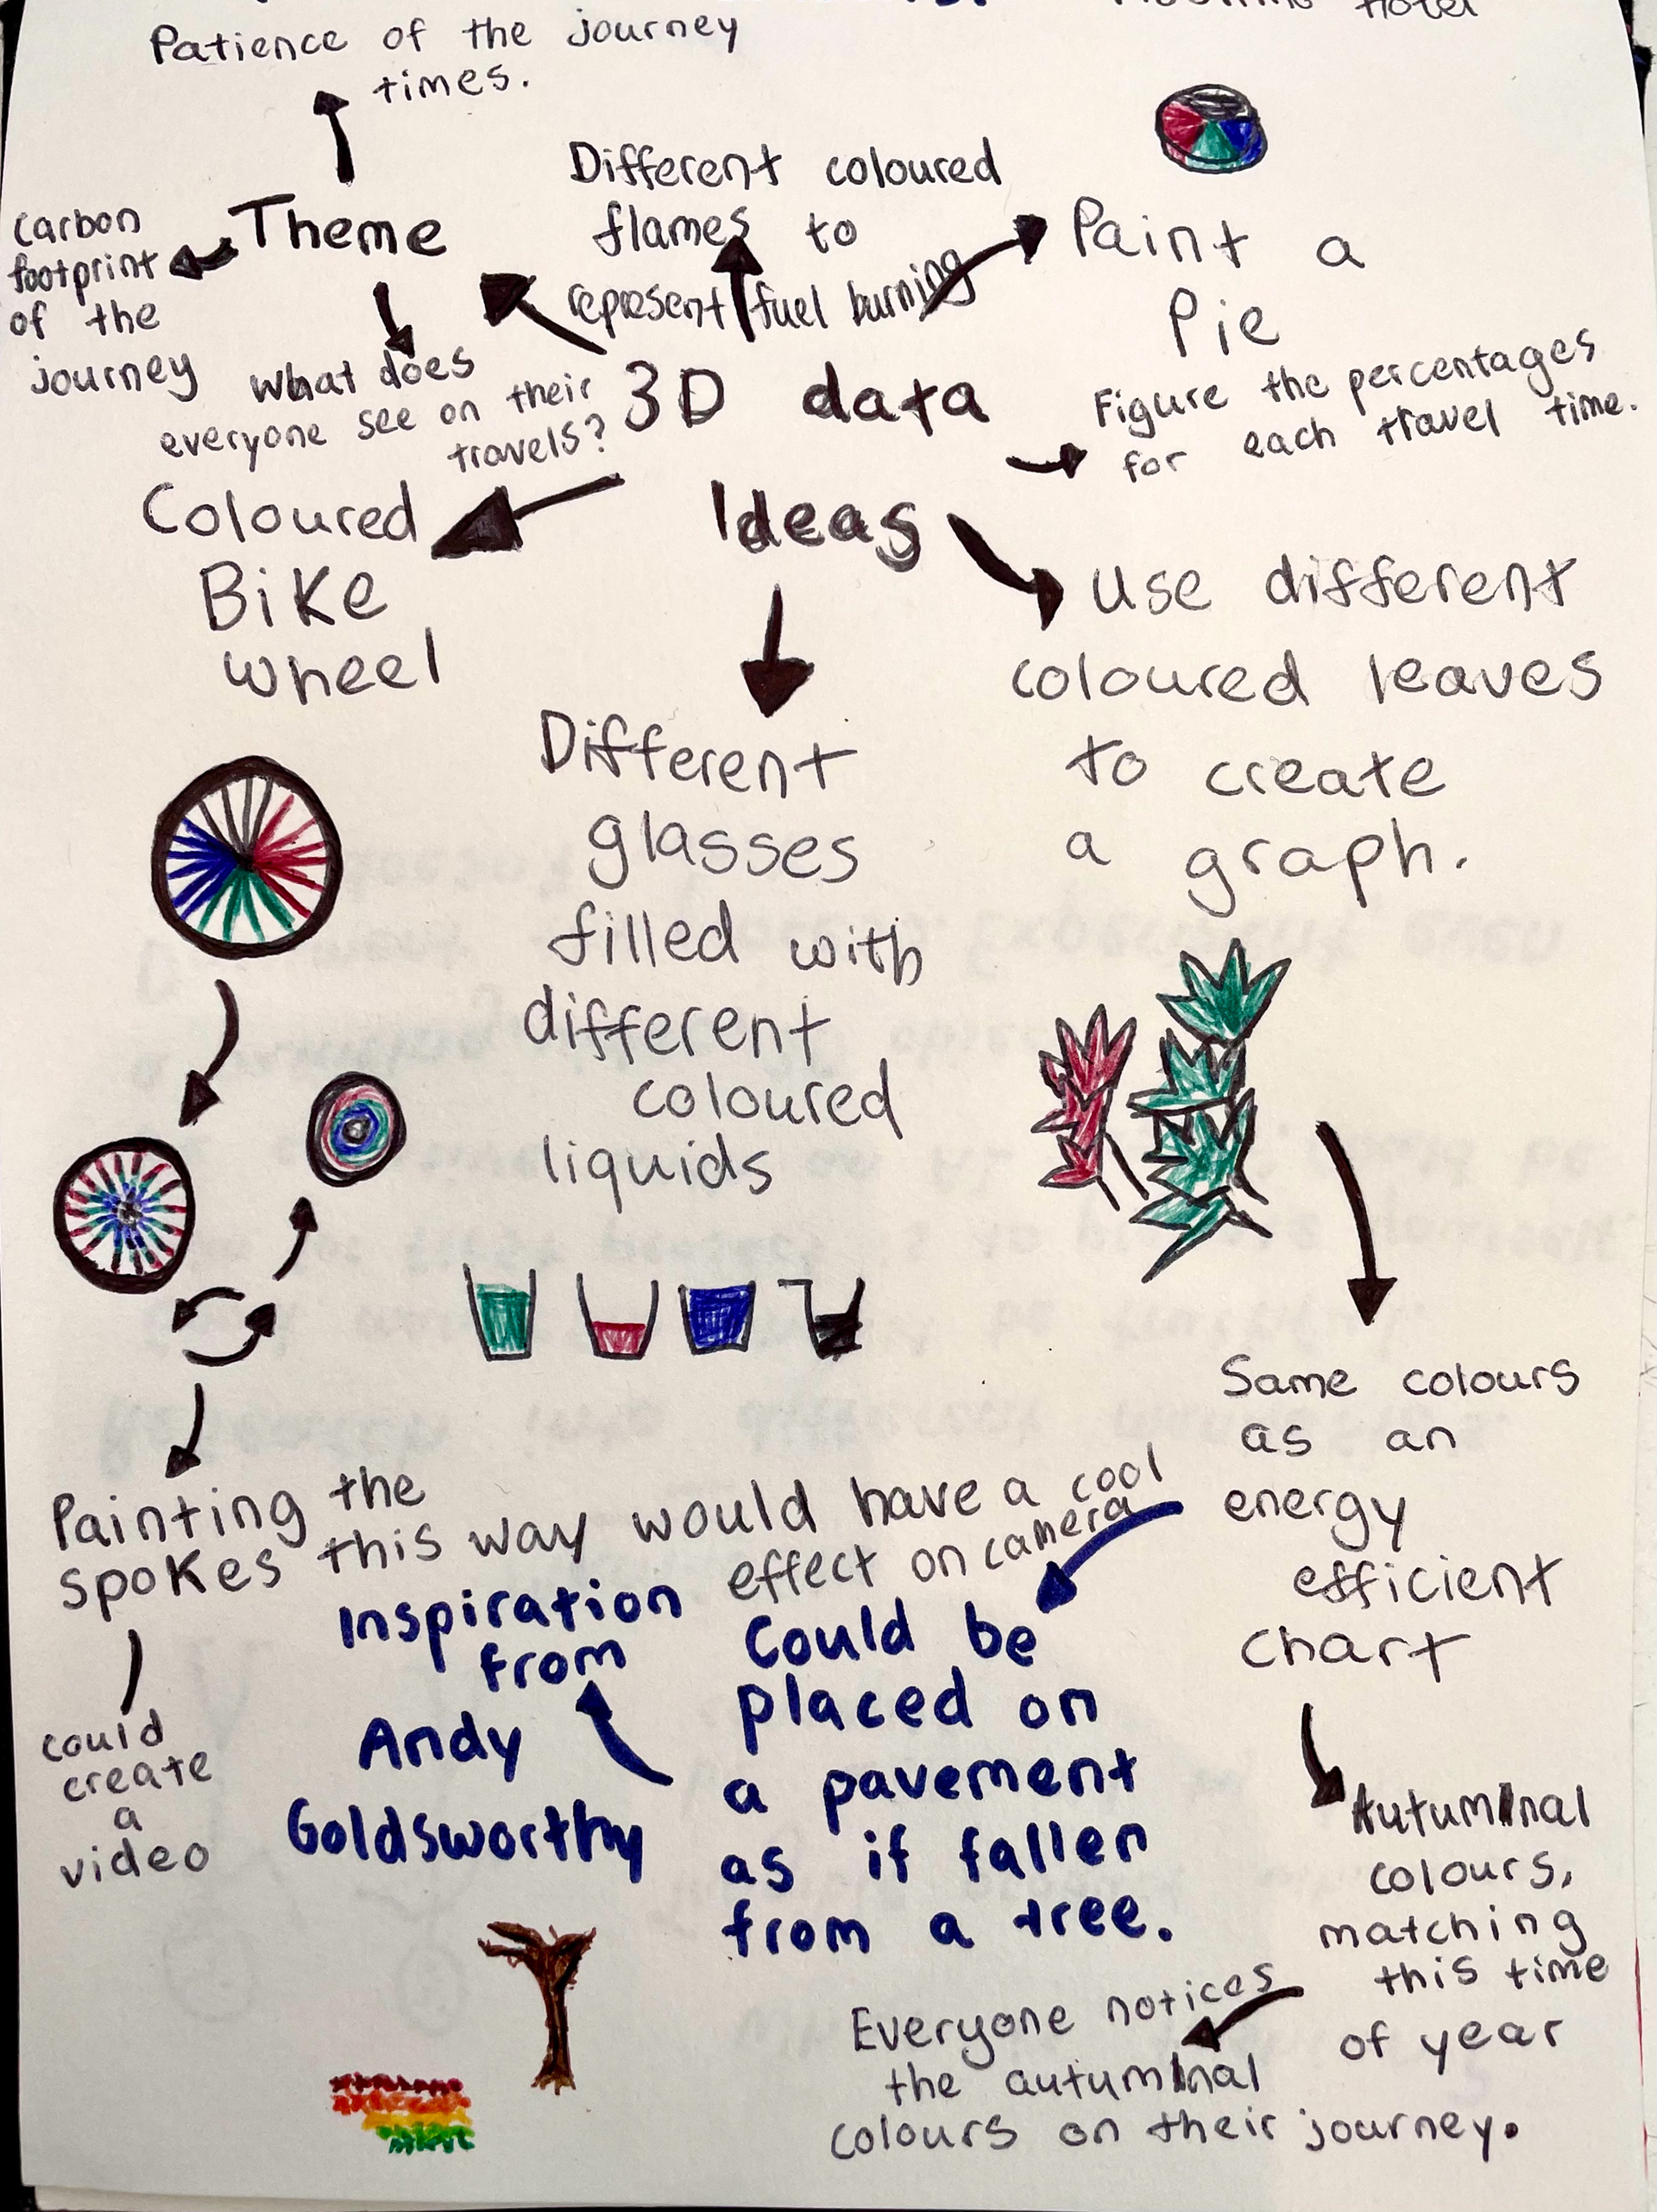 Hotel
Patience of the journey
times.
Theme
Carbon
footprint
of the
journey
What does
everyone see on their
travels?
Different coloured
flames to
represent fuel burning
Paint a
Pie
Figure the percentages
for each travel time.
3D data
Ideas
Coloured
Bike
wheel
Different
glasses
filled with
different
coloured
liquids
use different
coloured leaves
to create
a graph.
Same colours
as an
energy
efficient
chart
Painting the
spokes this way would have a cool
effect on camera
could
create
a
video
Inspiration
from
Andy
Goldsworthy
Could be
placed on
a pavement
as if fallen
from a tree.
Autumnal
colours,
matching
this time
of year
Everyone notices
the autumnal
colours on their journey.